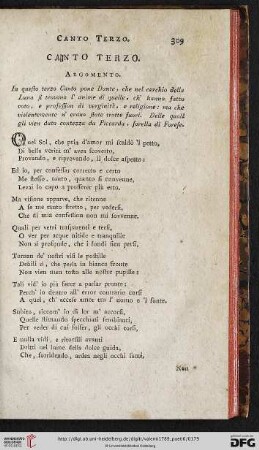 CANTO TERZO. 309
CANTO TERZO.
ARGOMENTO.
In questo terzo Canto pone Dante, che nel cerchio della
Luna si trovano l' anime di quelle, ch' hanno fatto
voto, e professione di verginità, e religione: ma che
violentemente n' erano state tratte fuori. Delle quali
gli vien data contezza da Piccarda, sorella di Forese.
Quel Sol, che pria d'amor mi scaldò 'l petto,
Di bella verità m' avea scoverto,
Provando, e riprovando, il dolce aspetto:
Ed io, per confessar corretto e certo
Me stesso, tanto, quanto si convenne,
Levai lo capo a profferer più erto.
Ma visione apparve, che ritenne
A se me tanto stretto, per vedersi,
Che di mia confession non mi sovvenne.
Quali per vetri trasparenti e tersi,
O ver per acque nitide e tranquille
Non sì profonde, che i fondi sien persi,
Tornan de' nostri visi le postille
Debili sì, che perla in bianca fronte
Non vien men tosto alle nostre pupille:
Tali vid' io più facce a parlar pronte:
Perch' io dentro all' error contrario corsi
A quel, ch' accese amor tra l' uomo e 'l fonte.
Subito, siccom' io di lor m' accorsi,
Quelle stimando specchiati sembianti,
Per veder di cui fosser, gli occhi torsi,
E nulla vidi, e ritorsili avanti
Dritti nel lume della dolce guida,
Che, sorridendo, ardea negli occhi santi.
Non
http://digi.ub.uni-heidelberg.de/diglit/
© Universitätsbibliothek Heidelberg
gefördert durch die
DFG